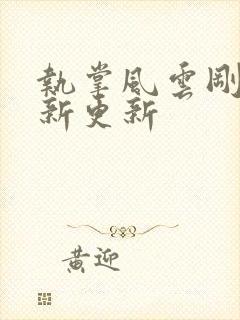 執掌風雲剛
新更新
黃迎